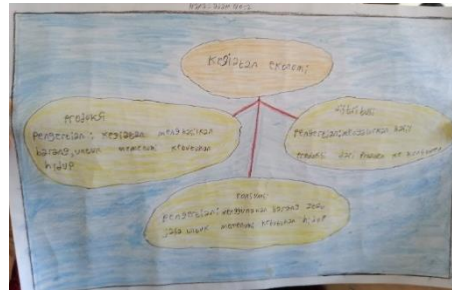 Kegiatan ekonomi
Produksi
Pengertian: Kegiatan menghasilkan
barang, untuk memenuhi kebutuhan
hidup
Distribusi
Pengertian: menyalurkan hasil
Produksi dari Produsen ke
Konsumsi
Pengertian: menggunakan barang atau
jasa untuk memenuhi kebutuhan hidup